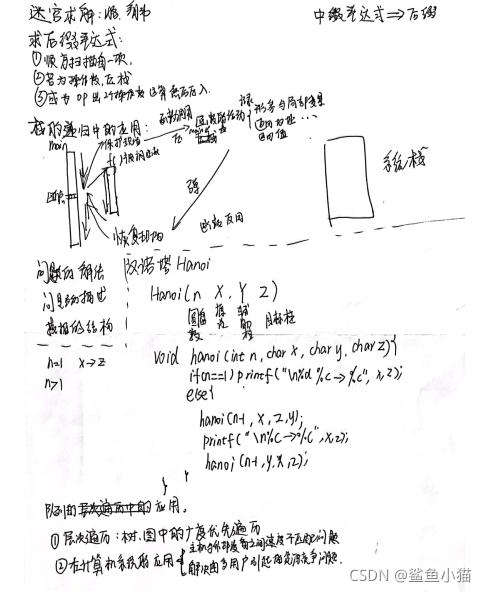 迷宫求解:
中缀表达式⇒后缀
求后缀表达式:
①顺序扫描每一项,
②若为操作数,压栈
③或为OP出2个操作数运算然后压入.
栈的递归中的应用:
函数调用
main
保护现场
形参与局部变量
返回地址…
返回值
系统栈
恢复现场
问题的解法
汉诺塔 Hanoi
问题的描述
Hanoi(n X, Y Z)
数据的结构
圆盘数
目标柱
n=1 X→Z
n>1
void hanoi(int n, char x, char y, char z){
if(n==1) printf("\n%d %c→%c", x,z);
else{
hanoi(n-1, x, z, y);
printf("\n%c→%c", x,z);
hanoi(n-1, y, x, z);
}
}
队列的应用.
①层次遍历:树、图中的广度优先遍历
②在计算机系统的应用
主机与外部设备之间速度不匹配问题
解决由多用户引起的资源竞争问题.
CSDN @鲨鱼小猫